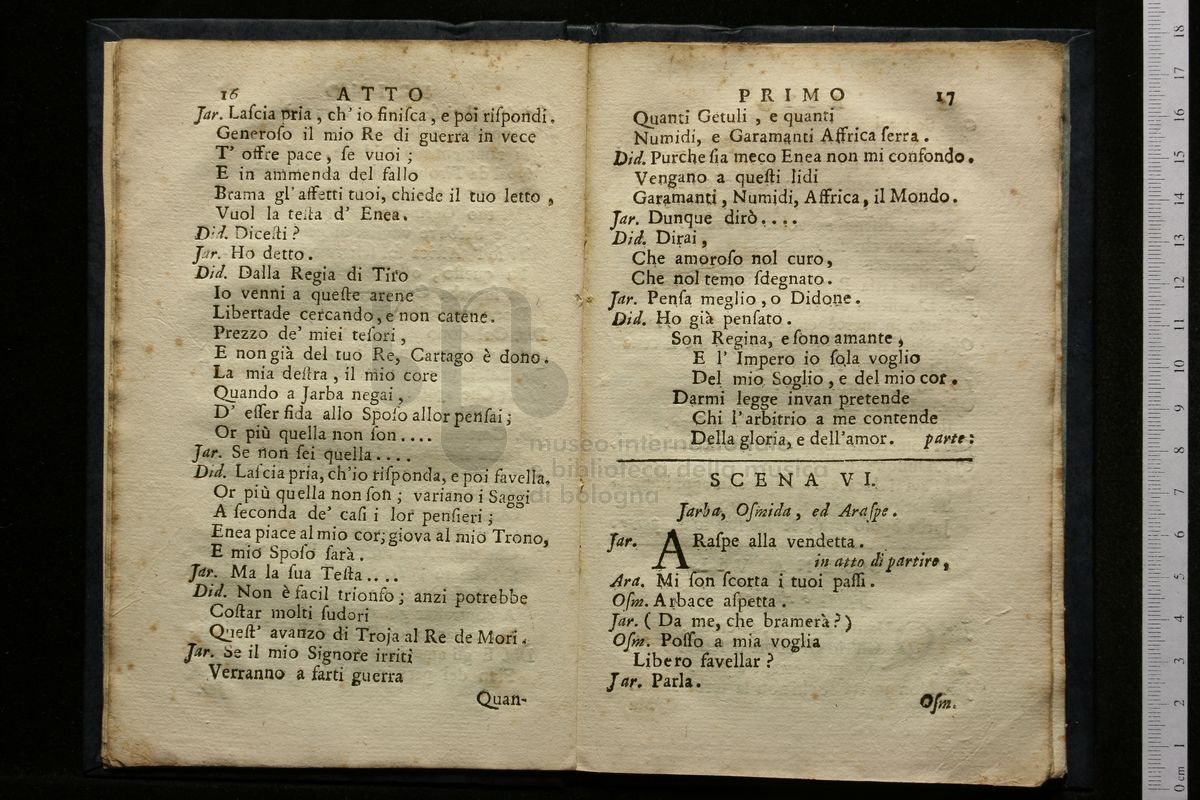 16 ATTO
Jar. Laſcia pria, ch' io finiſca, e poi riſpondi.
Generoſo il mio Re di guerra in vece
T' offre pace, ſe vuoi;
E in ammenda del fallo
Brama gl' affetti tuoi, chiede il tuo letto,
Vuol la teſta d' Enea.
Did. Diceſti?
Jar. Ho detto.
Did. Dalla Regia di Tiro
Io venni a queſte arene
Libertade cercando, e non catene.
Prezzo de' miei teſori,
E non già del tuo Re, Cartago è dono.
La mia deſtra, il mio core
Quando a Jarba negai,
D' eſſer fida allo Spoſo allor penſai;
Or più quella non ſon....
Jar. Se non ſei quella....
Did. Laſcia pria, ch'io riſponda, e poi favella.
Or più quella non ſon; variano i Saggi
A ſeconda de' caſi i lor penſieri;
Enea piace al mio cor; giova al mio Trono,
E mio Spoſo ſarà.
Jar. Ma la ſua Teſta....
Did. Non è facil trionfo; anzi potrebbe
Coſtar molti ſudori
Queſt' avanzo di Troja al Re de Mori.
Jar. Se il mio Signore irriti
Verranno a farti guerra
Quan-
PRIMO 17
Quanti Getuli, e quanti
Numidi, e Garamanti Affrica ſerra.
Did. Purche ſia meco Enea non mi confondo.
Vengano a queſti lidi
Garamanti, Numidi, Affrica, il Mondo.
Jar. Dunque dirò....
Did. Dirai,
Che amoroſo nol curo,
Che nol temo ſdegnato.
Jar. Penſa meglio, o Didone.
Did. Ho già penſato.
Son Regina, e ſono amante,
E l' Impero io ſola voglio
Del mio Soglio, e del mio cor.
Darmi legge invan pretende
Chi l'arbitrio a me contende
Della gloria, e dell'amor. parte:
SCENA VI.
Jarba, Oſmida, ed Araſpe.
Jar. ARaſpe alla vendetta.
in atto di partire,
Ara. Mi ſon ſcorta i tuoi paſſi.
Oſm. Arbace aſpetta.
Jar. (Da me, che bramerà?)
Oſm. Poſſo a mia voglia
Libero favellar?
Jar. Parla.
Oſm.
museo internazionale
e biblioteca della musica
di bologna
0 cm 1 2 3 4 5 6 7 8 9 10 11 12 13 14 15 16 17 18